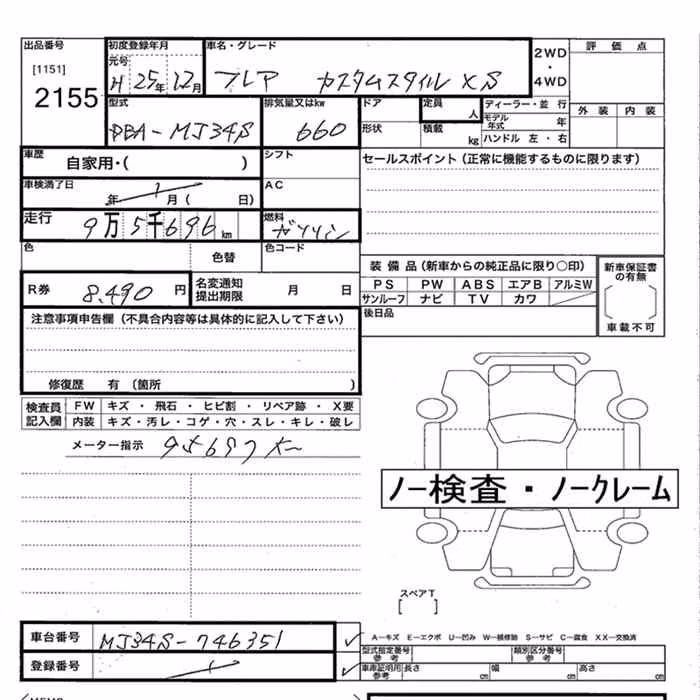 出品番号 初度登録年月 車名・グレード 2WD 評価点
[1151] 元号 ・
2155 H 25年12月 フレア カスタムスタイル XS 4WD
型式 排気量又はkw ドア 定員 人 ディーラー・並 行 外装 内装
DBA-MJ34S 660 形状 積載 kg モデル年式 年
ハンドル 左・右
車歴 自家用・( ) シフト セールスポイント(正常に機能するものに限ります)
車検満了日 年 月( 日) AC
走行 9万5千696km 燃料 ガソリン
色 色替 色コード
装備品(新車からの純正品に限り○印) 新車保証書の有無
R券 8,490円 名変通知提出期限 月 日 PS PW ABS エアB アルミW
サンルーフ ナビ TV カワ
注意事項申告欄(不具合内容等は具体的に記入して下さい) 後日品 車載不可
修復歴 有(箇所 )
検査員記入欄 FW キズ・飛石・ヒビ割・リペア跡・X要
内装 キズ・汚レ・コゲ・穴・スレ・キレ・破レ
メーター指示 95697km
ノー検査・ノークレーム
スペアT
[ ]
車台番号 MJ34S-746351 A-キズ E-エクボ U-凹み W-補修跡 S-サビ C-腐食 XX-交換済
型式指定番号 参考 類別区分番号 参考
登録番号 車庫証明用参考 長さ cm 幅 cm 高さ cm